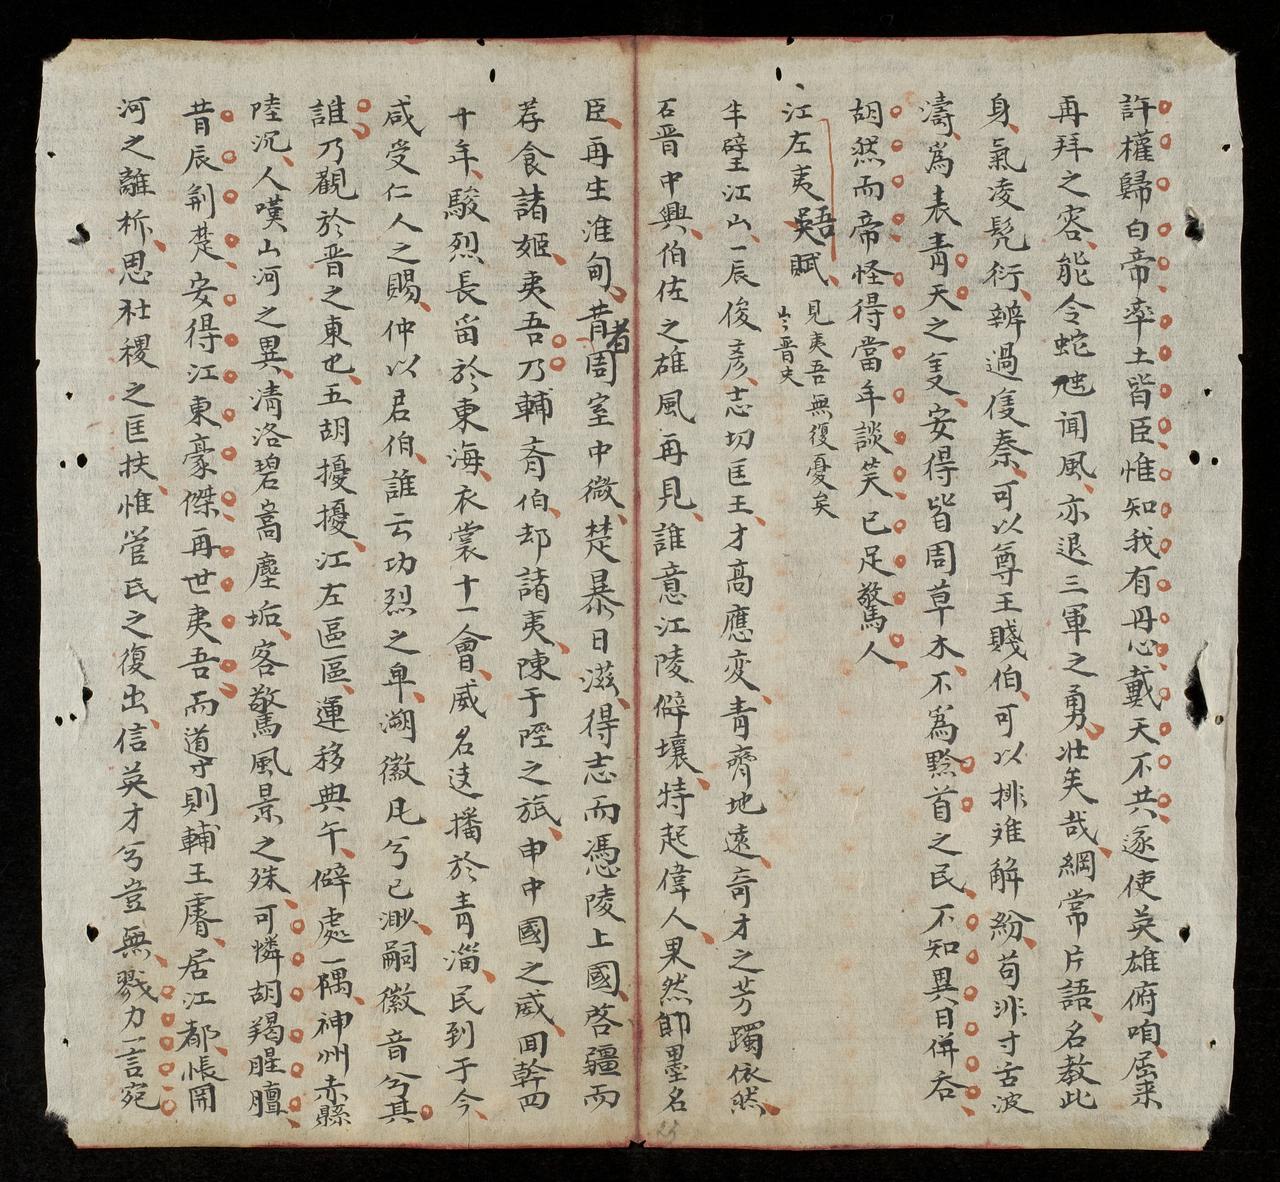 許權歸白帝率土皆臣惟知我有丹心戴天不共逐使英雄俯咱屈來
再拜之容能令蛇虺闻風亦退三軍之勇壯矣哉綱常片語名教此
身氣凌髡衍辨過隻秦可以尊王賤伯可以排难解紛苟非寸舌波
濤爲表青天之𡕩安得皆周草木不爲黔首之民不知異日併吞
胡然而帝怪得當年談笑已足驚人
江左夷吾賦見夷吾無復憂矣𫝀晋史
半壁江山一辰俊彥志切匡王才高應变青齊地遠奇才之芳躅依然
石晋中興伯佐之雄風再見誰意江陵僻壤特起偉人果然節墨名
臣再生淮甸昔者周室中微楚暴日滋得志而憑陵上國啓疆而
荐食諸姬夷吾乃輔齊伯却諸夷陳于陘之旅申中國之威囬幹四
十年駿烈長留於東海衣裳十一會威名迖播於青淄民到于今
咸受仁人之賜仲以君伯誰云功烈之卑溯徽凡兮已渺嗣徽音兮其
誰乃觀於晋之東也五胡擾擾江左區區運移典午僻處一隅神州赤縣
陸沉人嘆山河之異清洛碧嵩塵垢客驚風景之殊可憐胡羯腥膻
昔辰荆楚安得江東豪傑再世夷吾而導則輔王睿居江都悵関
河之離析思社稷之匡扶惟管氏之復出信英才兮豈無戮力一言宛